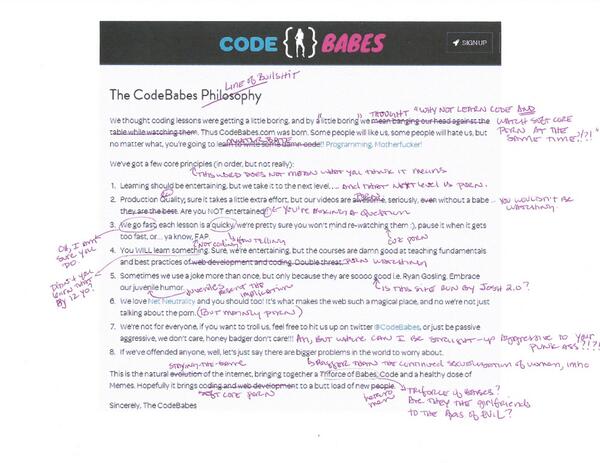 CODE {} BABES
SIGN UP
LINE OF BULLSHIT
The CodeBabes Philosophy
THOUGHT "WHY NOT LEARN CODE AND
We thought coding lessons were getting a little boring, and by "a little boring" we mean banging our head against the
WATCH SOFT CORE
table while watching them. Thus CodeBabes.com was born. Some people will like us, some people will hate us, but
PORN AT THE
SAME TIME!?!"
MASTURBATE
no matter what, you're going to learn to write some damn code!! Programming, Motherfucker!
We've got a few core principles (in order, but not really):
THIS WORD DOES NOT MEAN WHAT YOU THINK IT MEANS
1. Learning should be entertaining, but we take it to the next level.... AND THAT NEXT LEVEL IS PORN.
PORN
2. Production Quality; sure it takes a little extra effort, but our videos are awesome, seriously, even without a babe
YOU WOULDN'T BE
WATCHING.
they are the best. Are you NOT entertained YOU'RE ASKING A QUESTION
3. We go fast, each lesson is a quicky, we're pretty sure you won't mind re-watching them :), pause it when it gets
OH, I AM
SURE YOU
DO.
too fast, or... ya know, FAP.
NOT CODING HOW TELLING
OUR PORN
4. You WILL learn something. Sure, we're entertaining, but the courses are damn good at teaching fundamentals
DIDN'T YOU
LEARN THAT
BY 12 YO?
and best practices of web development and coding. Double threat. PORN WATCHING
5. Sometimes we use a joke more than once, but only because they are soooo good i.e. Ryan Gosling. Embrace
our juvenile humor.
JUVENILES RESENT THE
IMPLICATION
IS THIS SITE RUN BY JOSH 2.0?
6. We love Net Neutrality and you should too! It's what makes the web such a magical place, and no we're not just
talking about the porn. (BUT MAINLY PORN)
7. We're not for everyone, if you want to troll us, feel free to hit us up on twitter @CodeBabes, or just be passive
aggressive, we don't care, honey badger don't care!!! AH, BUT WHERE CAN I BE STRAIGHT-UP AGGRESSIVE TO YOUR
PUNK ASS?!?!?
8. If we've offended anyone, well, let's just say there are bigger problems in the world to worry about.
STAYING-THE-SAME
BIGGER THAN THE CONTINUED SEXUALIZATION OF WOMEN, IMHO
This is the natural evolution of the internet, bringing together a Triforce of Babes, Code and a healthy dose of
Memes. Hopefully it brings coding and web development to a butt load of new people.
SOFT CORE PORN
HETERO
MEN
"TRIFORCE OF BABES"?
ARE THEY THE GIRLFRIENDS
TO THE AXIS OF EVIL?
Sincerely, The CodeBabes